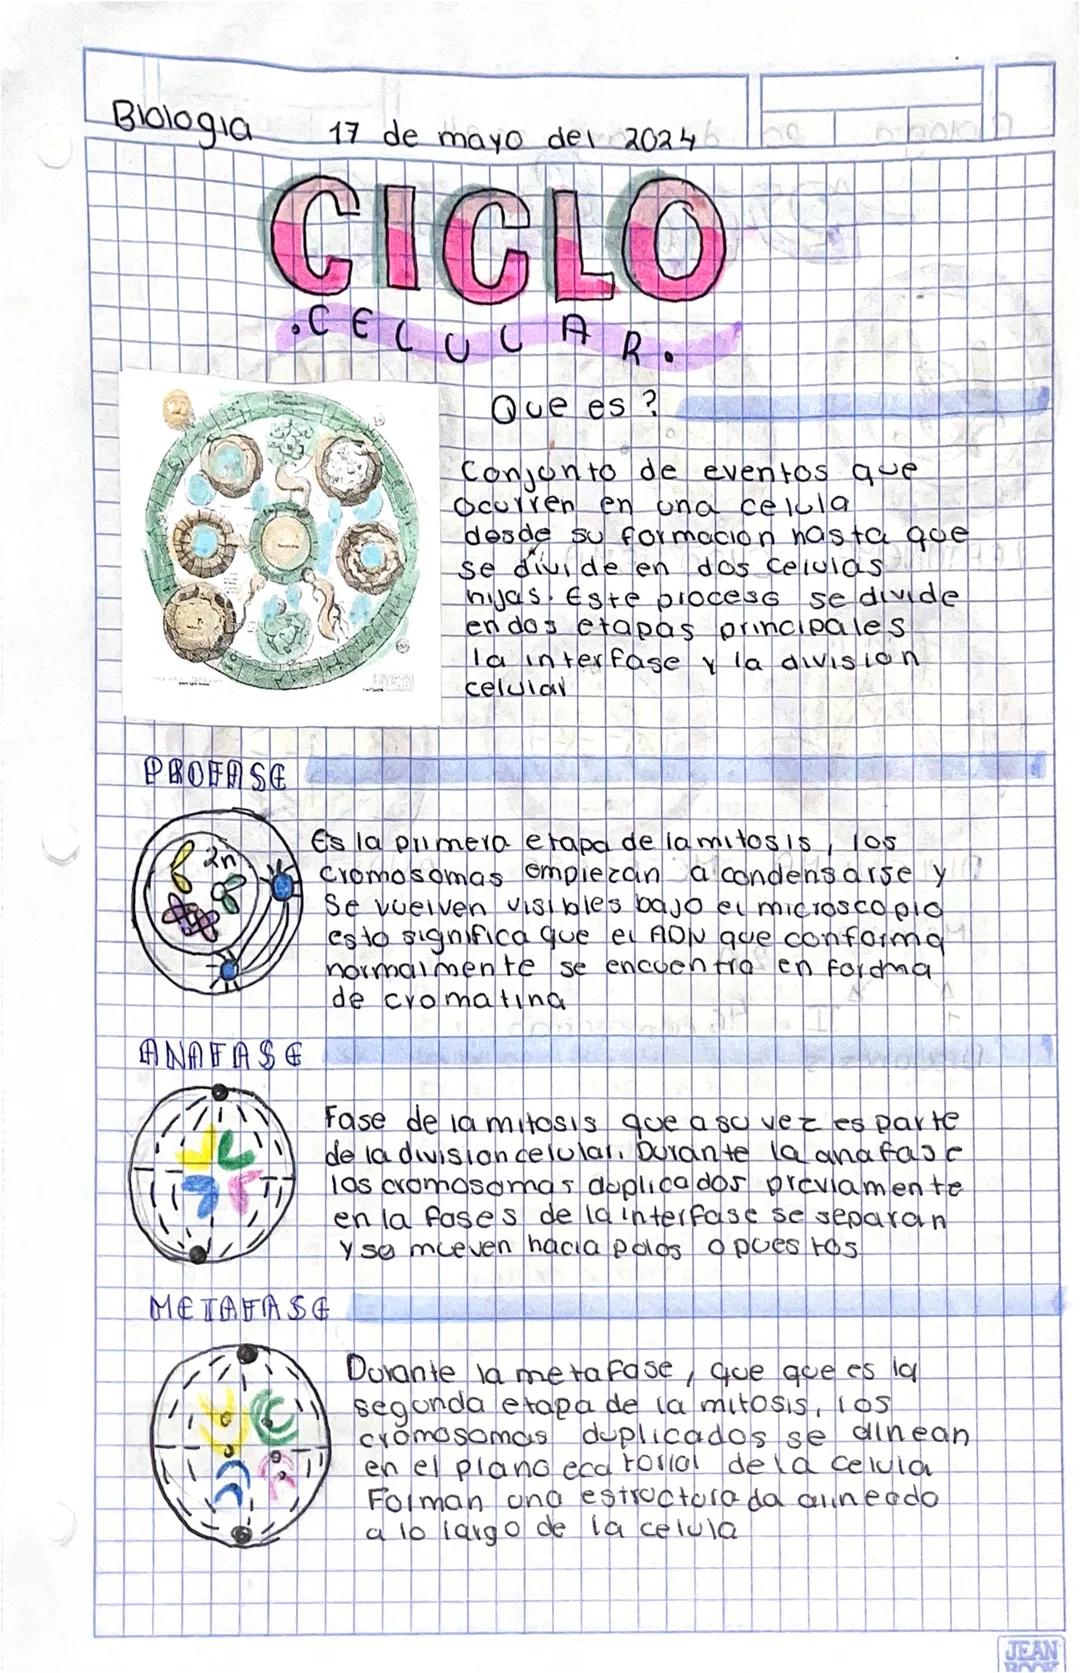 Biologia 17 de mayo del 2024
CICLO
.CELULAR.
Que es?
Conjunto de eventos que
ocurren en una celula
desde su formacion hasta que
se divide en dos celulas
hijas. Este proceso se divide
en dos etapas principales
la interfase y la division
celular
PROFASE
2n
Es la primera etapa de la mitosis, los
cromosomas empiezan a condensarse y
se vuelven visibles bajo el microscopio
esto significa que el ADN que conforma
normalmente se encuentra en fordma
de cromatina
ANAFASE
Fase de la mitosis que a su vez es parte
de la division celular. Durante la anafase
los cromosomas duplicados previamente
en la fases de la interfase se separan
y se mueven hacia polos opuestos
METAFASE
Durante la metafase, que que es la
segunda etapa de la mitosis, los
cromosomas duplicados se alinean
en el plano ecatorial de la celula
Forman una estructura da alineado
a lo largo de la celula
JEAN
BOOK